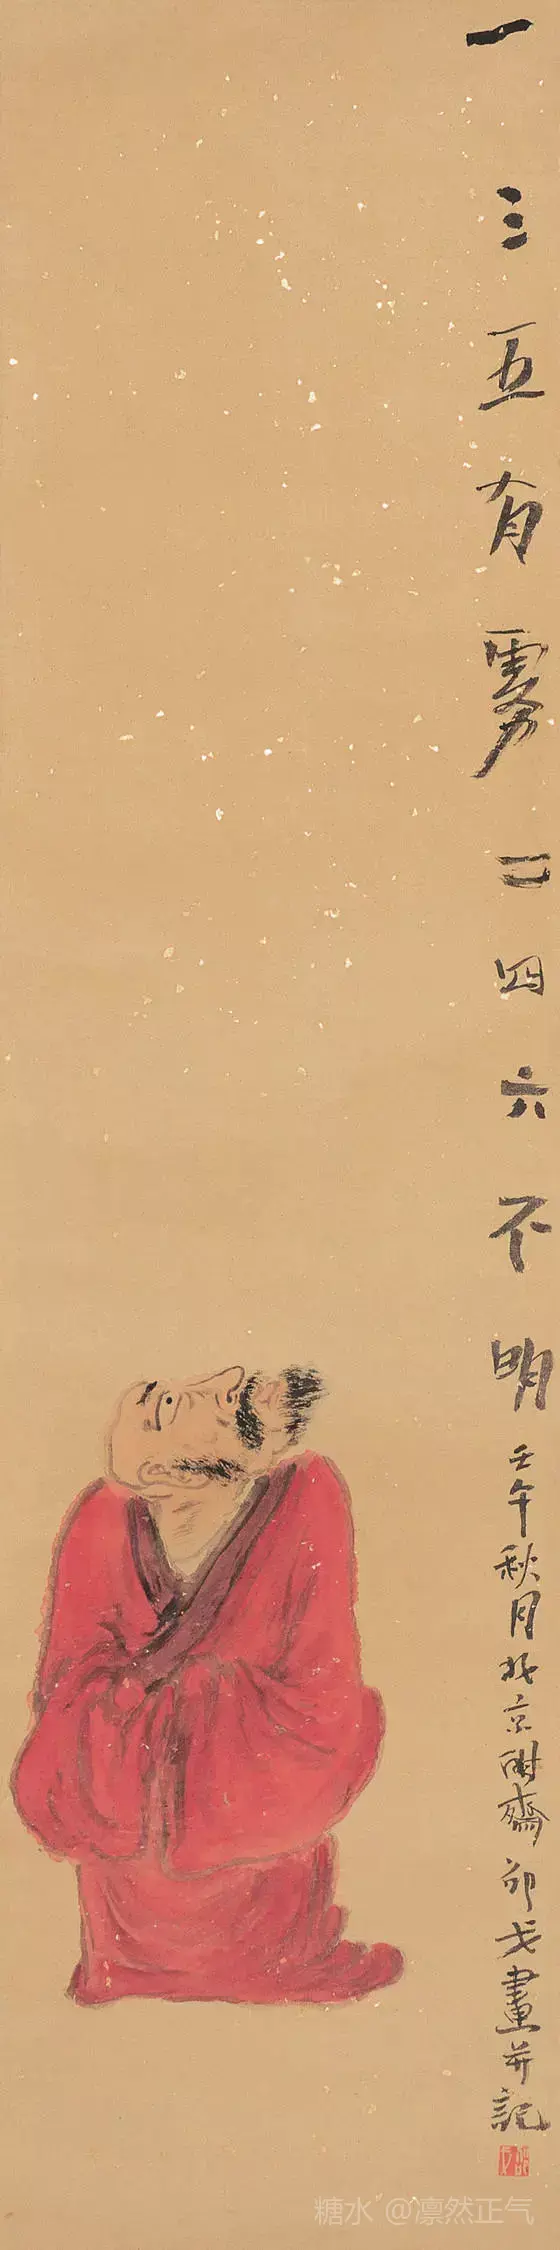 一三五有雾二四六不明壬午秋月北京齋卯戈畫并記
糖水 @凛然正气